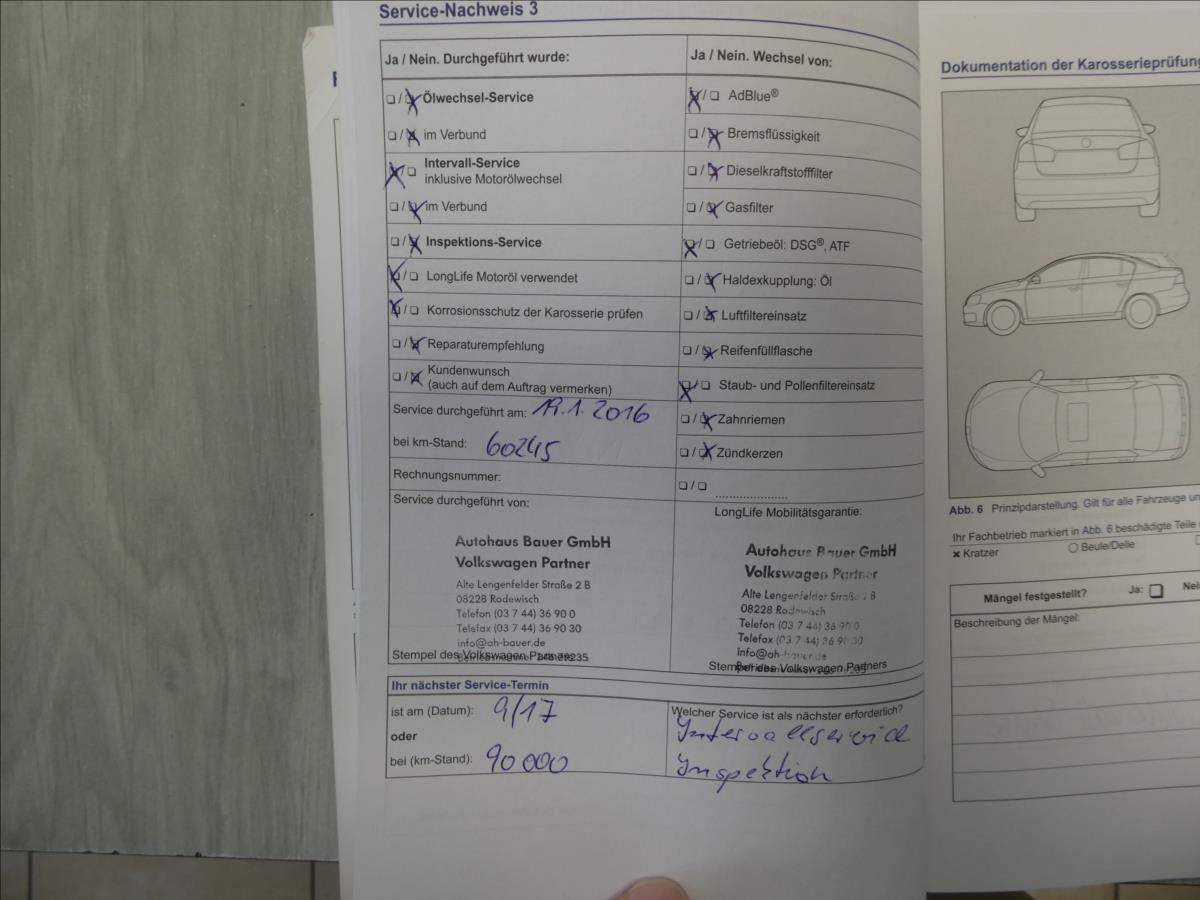 Service-Nachweis 3
Ja / Nein. Durchgeführt wurde:
❏ / ❏ Ölwechsel-Service
❏ / ❏ im Verbund
❏ / ❏ Intervall-Service
inklusive Motorölwechsel
❏ / ❏ im Verbund
❏ / ❏ Inspektions-Service
❏ / ❏ LongLife Motoröl verwendet
❏ / ❏ Korrosionsschutz der Karosserie prüfen
❏ / ❏ Reparaturempfehlung
❏ / ❏ Kundenwunsch
(auch auf dem Auftrag vermerken)
Service durchgeführt am: 19.1.2016
bei km-Stand: 60245
Rechnungsnummer:
Service durchgeführt von:
Autohaus Bauer GmbH
Volkswagen Partner
Alte Lengenfelder Straße 2 B
08228 Rodewisch
Telefon (03 7 44) 36 90 0
Telefax (03 7 44) 36 90 30
info@ah-bauer.de
Stempel des Volkswagen Partners
Ja / Nein. Wechsel von:
❏ / ❏ AdBlue®
❏ / ❏ Bremsflüssigkeit
❏ / ❏ Dieselkraftstofffilter
❏ / ❏ Gasfilter
❏ / ❏ Getriebeöl: DSG®, ATF
❏ / ❏ Haldexkupplung: Öl
❏ / ❏ Luftfiltereinsatz
❏ / ❏ Reifenfüllflasche
❏ / ❏ Staub- und Pollenfiltereinsatz
❏ / ❏ Zahnriemen
❏ / ❏ Zündkerzen
❏ / ❏ ....................
LongLife Mobilitätsgarantie:
Autohaus Bauer GmbH
Volkswagen Partner
Alte Lengenfelder Straße 2 B
08228 Rodewisch
Telefon (03 7 44) 36 90 0
Telefax (03 7 44) 36 90 30
info@ah-bauer.de
Stempel des Volkswagen Partners
Ihr nächster Service-Termin
ist am (Datum): 9/17
oder
bei (km-Stand): 90000
Welcher Service ist als nächster erforderlich?
Intervallservice
Inspektion
Dokumentation der Karosserieprüfung
Abb. 6 Prinzipdarstellung. Gilt für alle Fahrzeuge
Ihr Fachbetrieb markiert in Abb. 6 beschädigte Teile
× Kratzer ○ Beule/Delle
Mängel festgestellt? Ja: ❏ Nei
Beschreibung der Mängel: